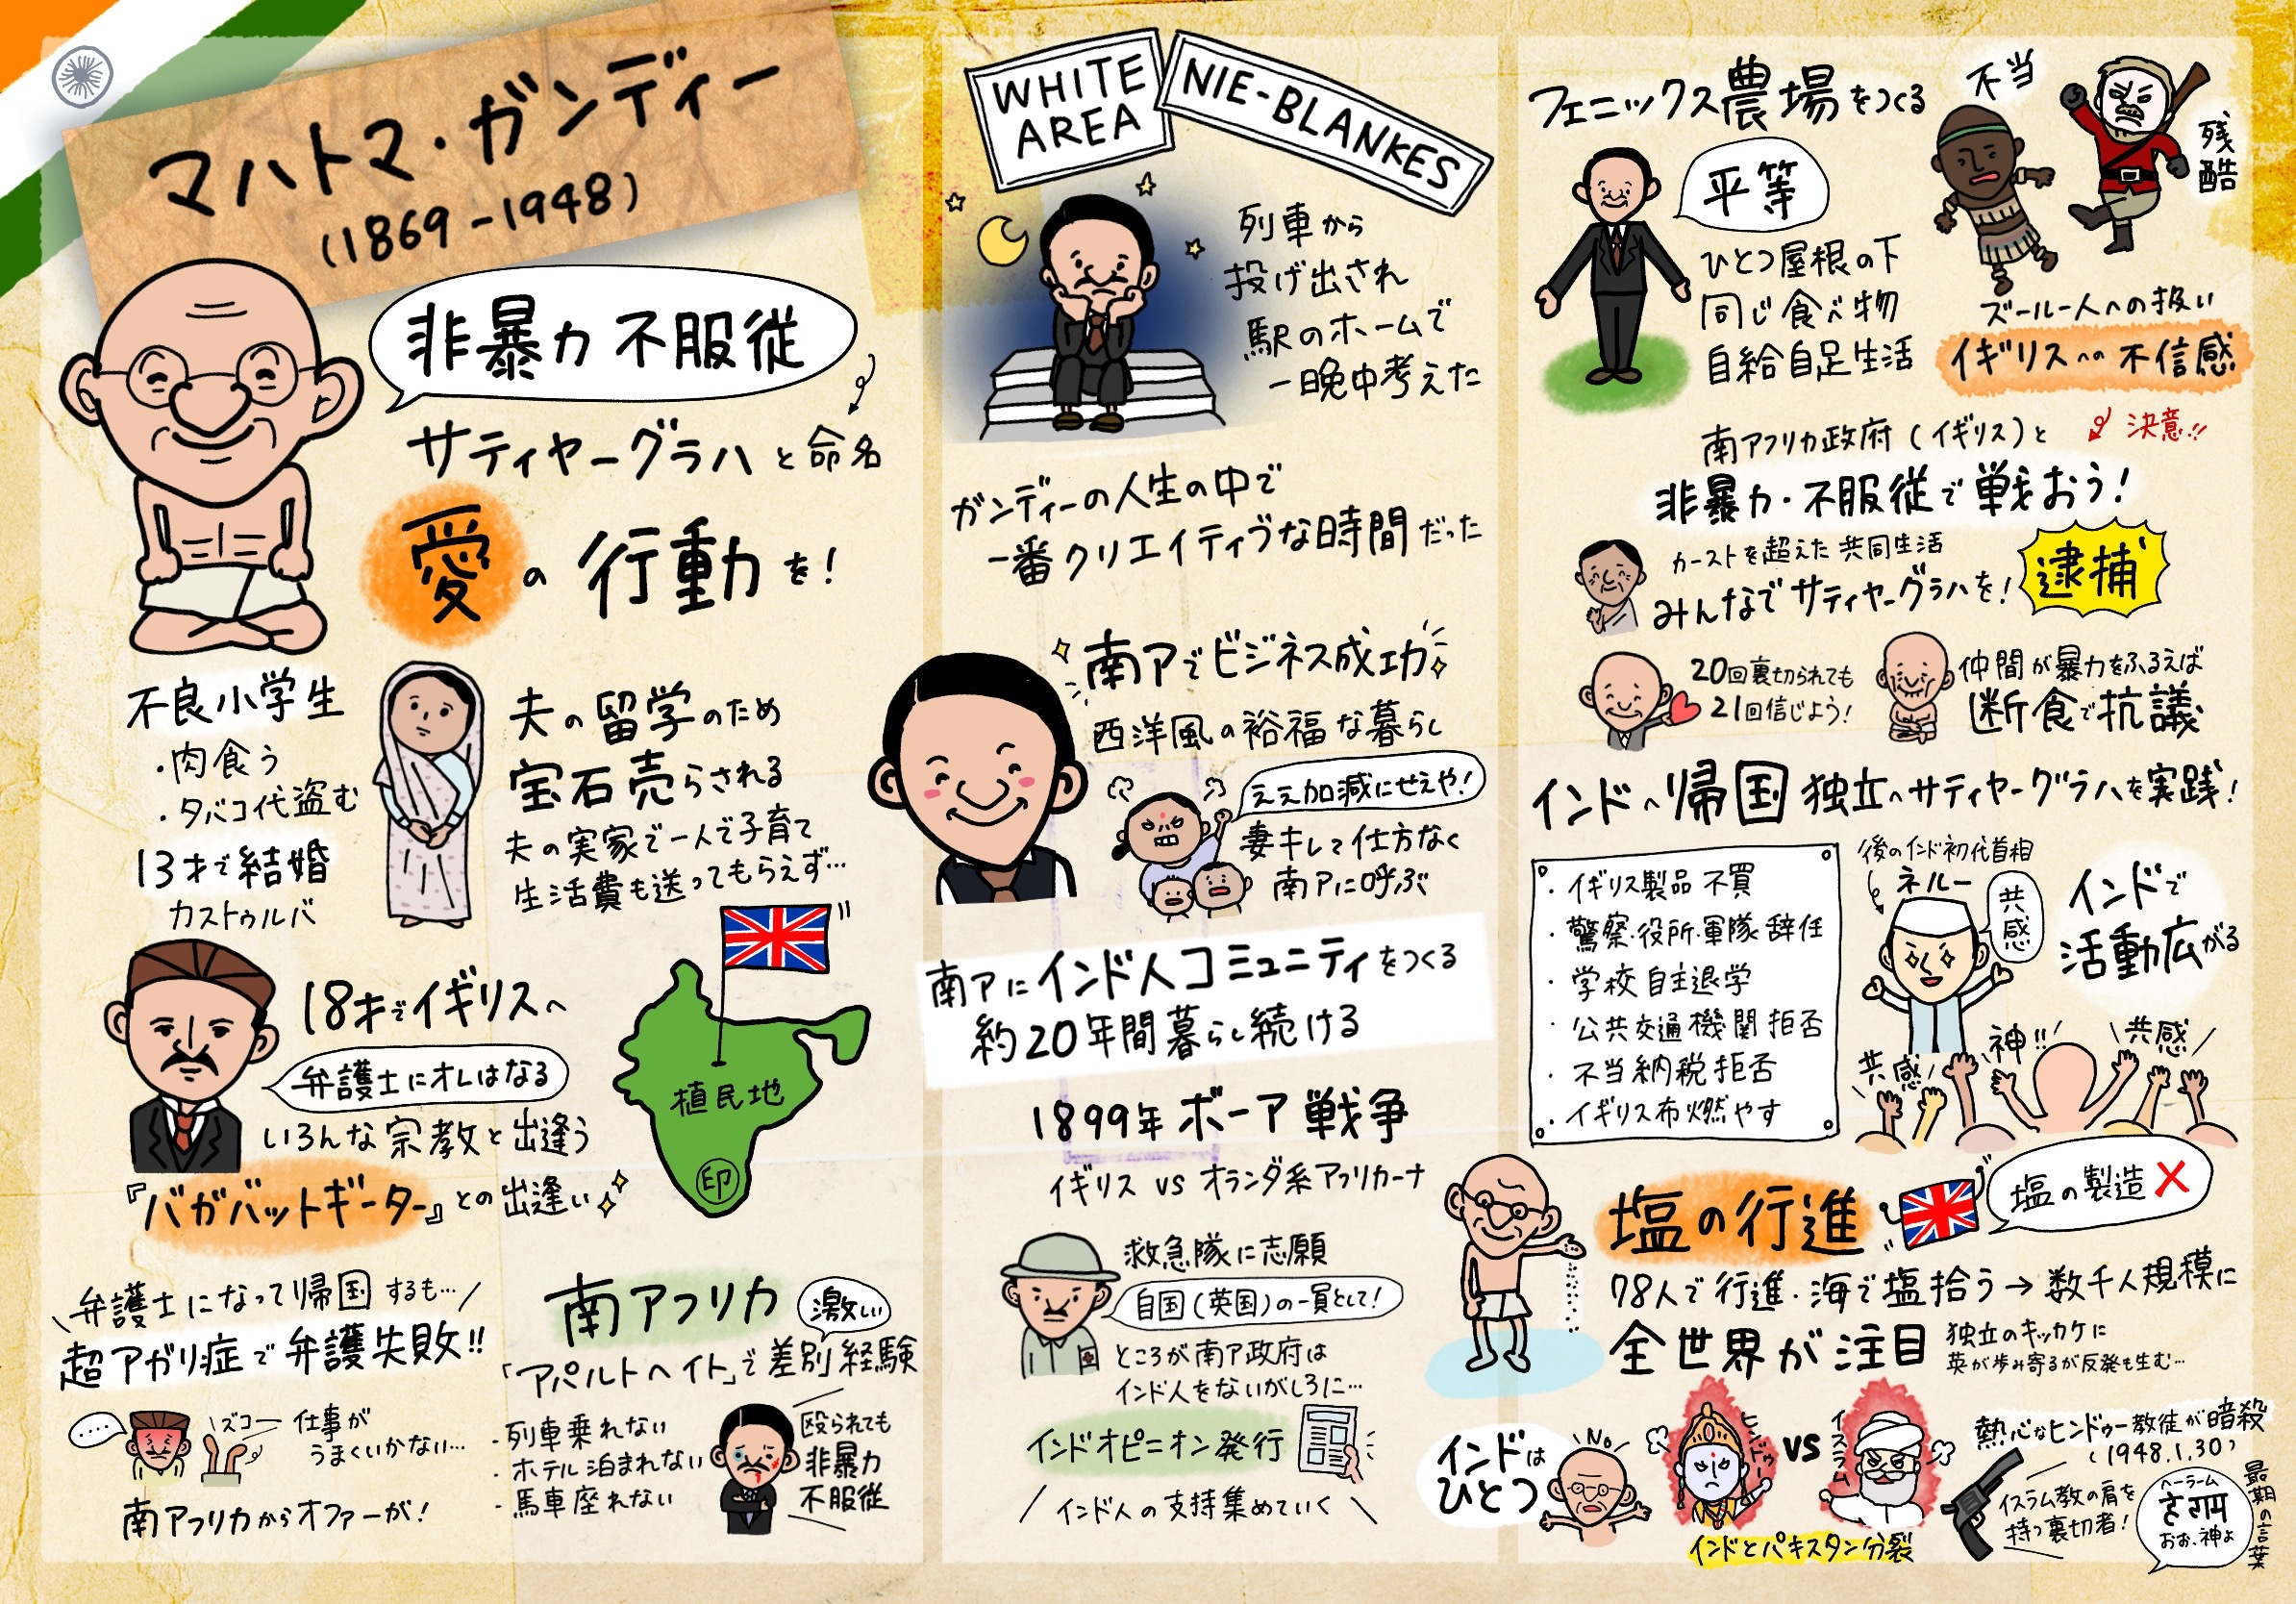 マハトマ・ガンディー
(1869-1948)
非暴力 不服従
サティヤーグラハと命名
愛の行動を!
不良小学生
・肉食う
・タバコ代盗む
13才で結婚
カストゥルバ
夫の留学のため
宝石売らされる
夫の実家で一人で子育て
生活費も送ってもらえず…
18才でイギリスへ
弁護士にオレはなる
いろんな宗教と出逢う
『バガバットギーター』との出逢い
植民地
印
弁護士になって帰国するも…
超アガリ症で弁護失敗!!
…
ズコー
仕事が
うまくいかない…
南アフリカからオファーが!
南アフリカ
激しい
「アパルトヘイト」で差別経験
・列車乗れない
・ホテル泊まれない
・馬車座れない
殴られても
非暴力
不服従
WHITE
AREA
NIE-BLANKES
列車から
投げ出され
駅のホームで
一晩中考えた
ガンディーの人生の中で
一番クリエイティヴな時間だった
南アでビジネス成功
西洋風の裕福な暮らし
ええ加減にせえや!
妻キレて仕方なく
南アに呼ぶ
南アにインド人コミュニティをつくる
約20年間暮らし続ける
1899年 ボーア戦争
イギリス vs オランダ系アフリカーナ
救急隊に志願
自国(英国)の一員として!
ところが南ア政府は
インド人をないがしろに…
インドオピニオン発行
インド人の支持集めていく
フェニックス農場をつくる
平等
ひとつ屋根の下
同じ食べ物
自給自足生活
不当
残酷
ズールー人への扱い
イギリスへの不信感
決意!!
南アフリカ政府(イギリス)と
非暴力・不服従で戦おう!
カーストを超えた共同生活
みんなでサティヤーグラハを!
逮捕
20回裏切られても
21回信じよう!
仲間が暴力をふるえば
断食で抗議
インドへ帰国 独立へサティヤーグラハを実践!
・イギリス製品 不買
・警察・役所・軍隊 辞任
・学校 自主退学
・公共交通機関 拒否
・不当納税 拒否
・イギリス布燃やす
後のインド初代首相
ネルー
共感
インドで
活動広がる
共感
神!!
共感
塩の行進
塩の製造 ×
78人で行進・海で塩拾う→数千人規模に
全世界が注目
独立のキッカケに
英が歩み寄るが反発も生む…
インドは
ひとつ
No
ヒンドゥー
vs
イスラム
インドとパキスタン分裂
熱心なヒンドゥー教徒が暗殺
(1948.1.30)
イスラム教の肩を
持つ裏切者!
ヘーラーム
おお、神よ
最期の言葉